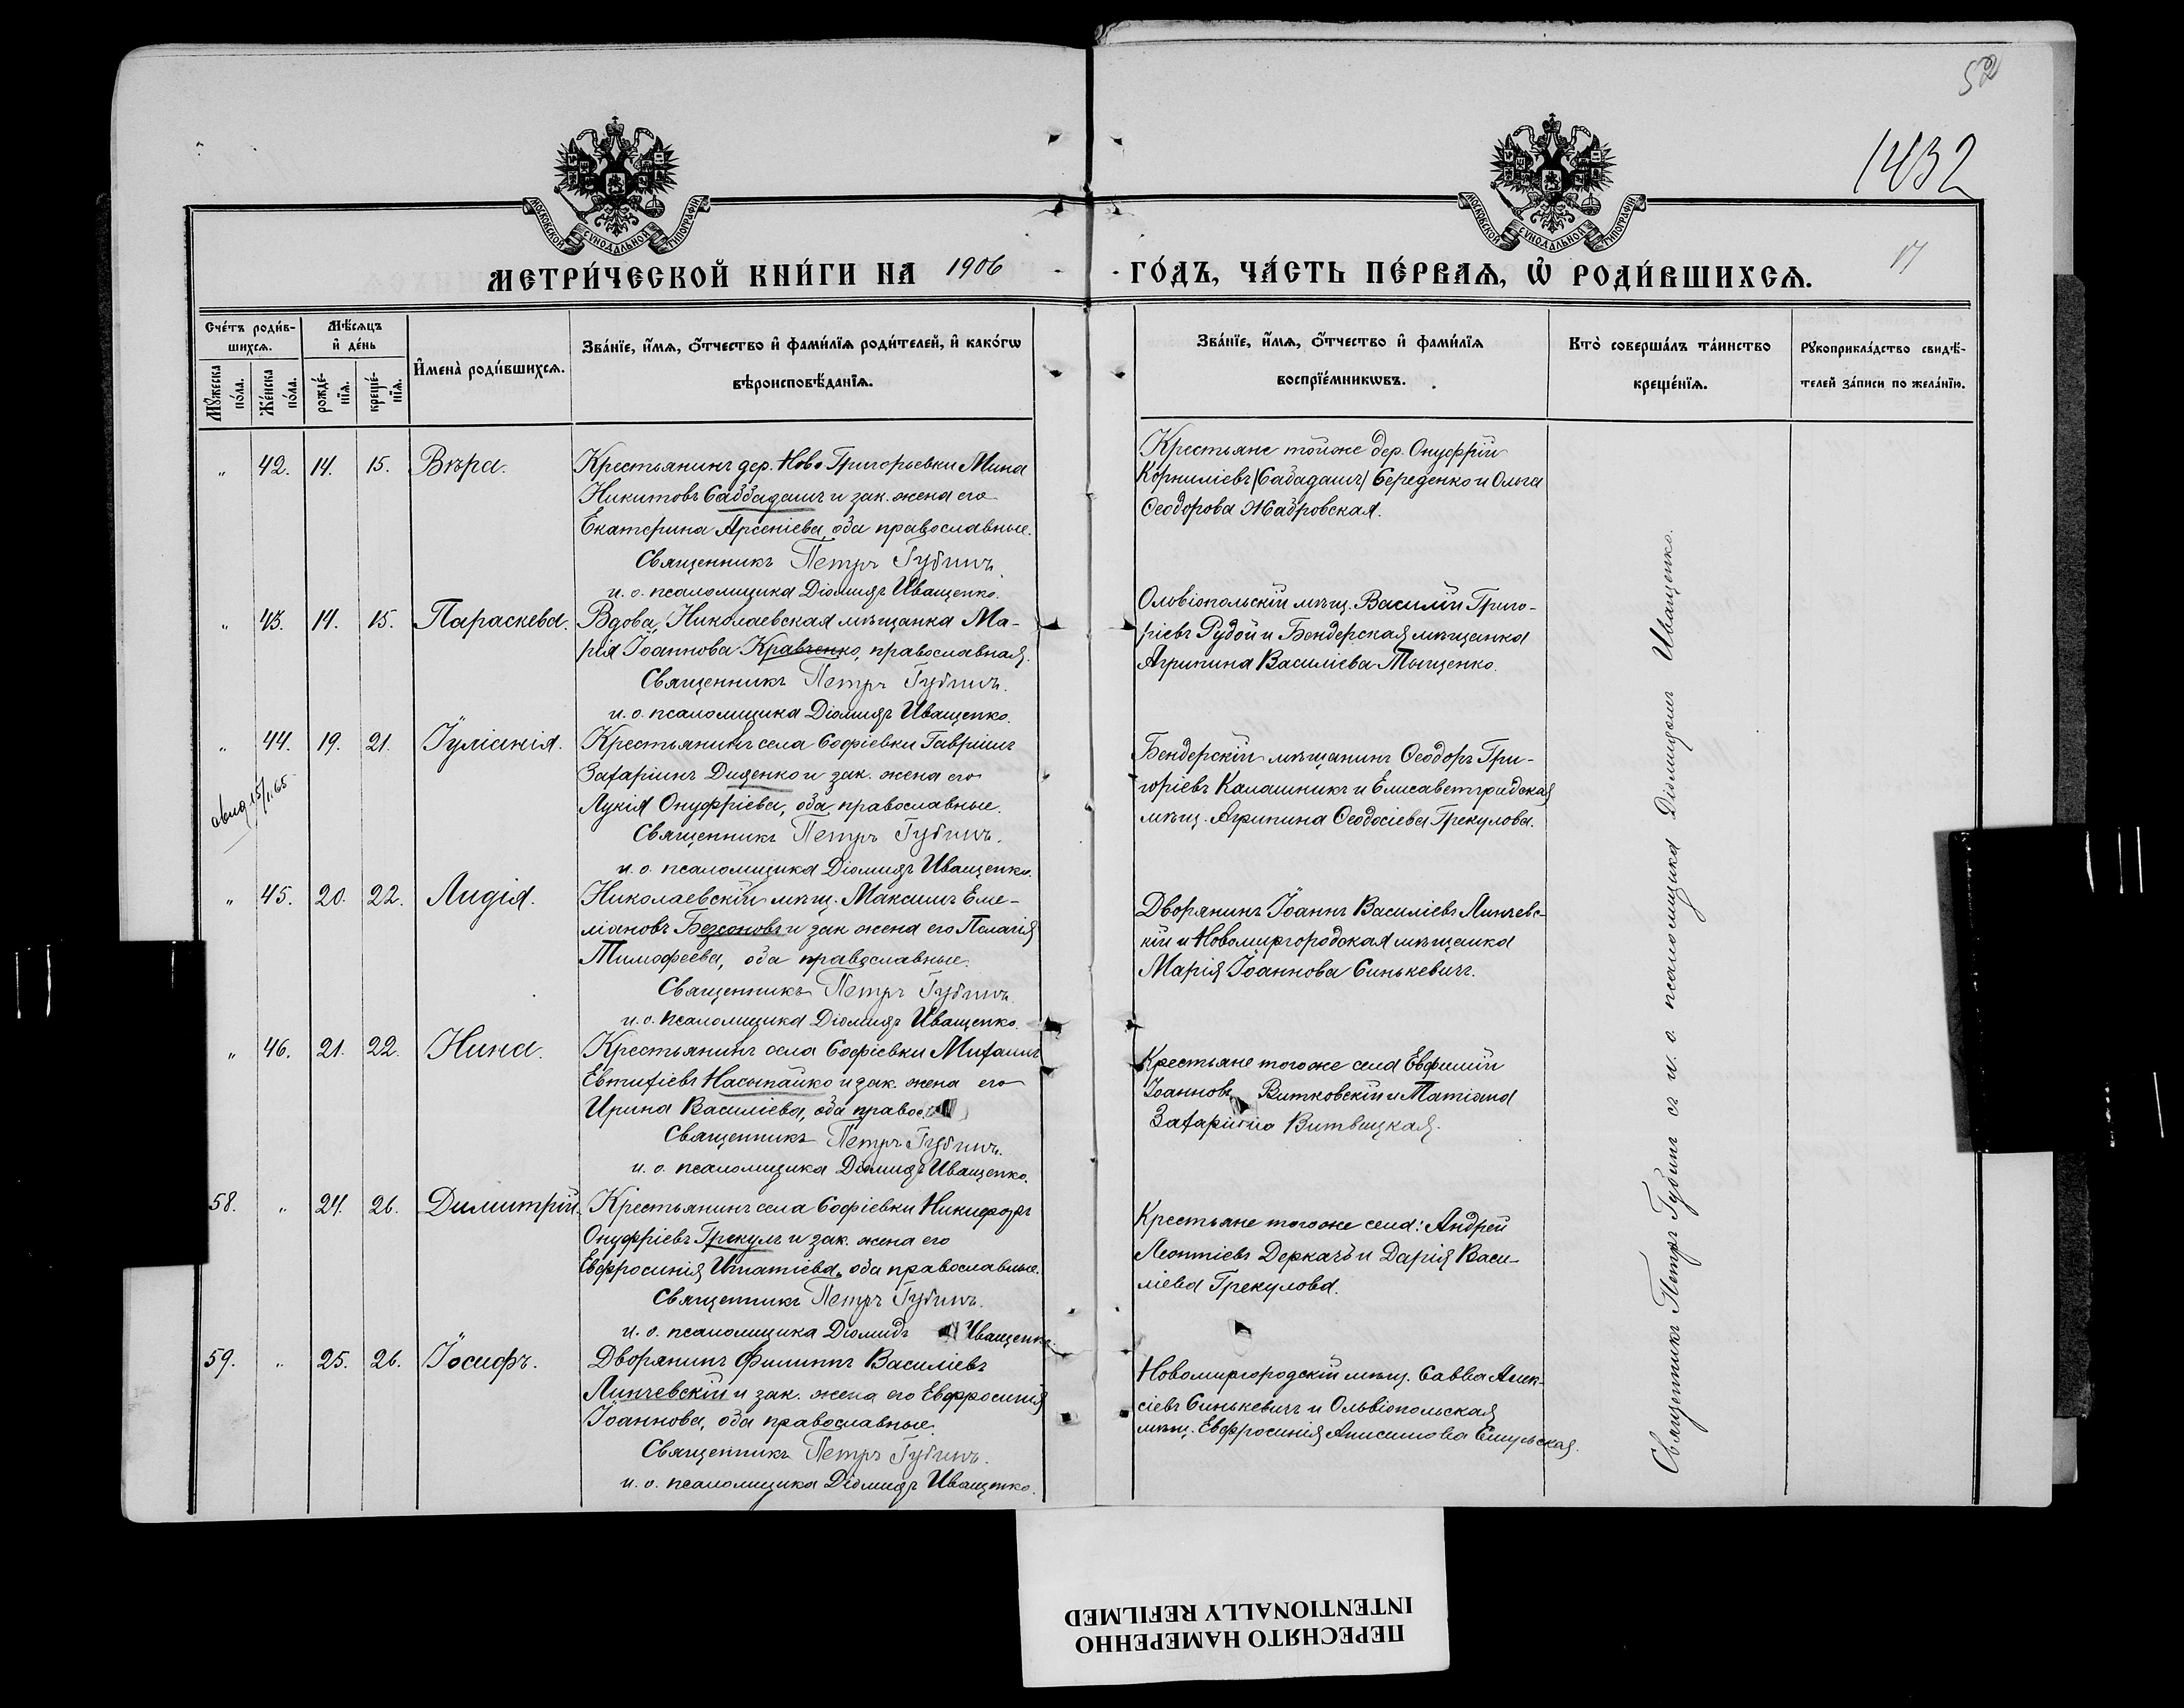 52
1432
17
МОСКОВСКОЙ СѴНОДАЛЬНОЙ ТИПОГРАФІИ
МОСКОВСКОЙ СѴНОДАЛЬНОЙ ТИПОГРАФІИ
МЕТРИ́ЧЕСКОЙ КНИ́ГИ НА 1906 ГО́ДЪ, ЧА́СТЬ ПЕ́РВАѦ, Ѡ҆ РОДИ́ВШИХСѦ.
Сче́тъ роди́вшихсѧ.
Мѣ́сѧцъ и҆ де́нь
И҆мена̀ роди́вшихсѧ.
Зва́нїе, и҆́мѧ, ѻ҆́тчество и҆ фами́лїѧ роди́телей, и҆ како́гѡ
вѣроисповѣ́данїѧ.
Мꙋ́жеска по́ла.
Же́нска по́ла.
рожде́нїѧ.
креще́нїѧ.
Зва́нїе, и҆́мѧ, ѻ҆́тчество и҆ фами́лїѧ
воспрїе́мникѡвъ.
Кто̀ соверша́лъ та́инство
креще́нїѧ.
Рꙋкоприкла́дство свидѣ́-
телей за́писи по жела́нїю.
„ 42. 14. 15. Вѣра.
Крестьянинъ дер. Ново Григорьевки Мина
Никитовъ Саббадашъ и зак. жена его
Екатерина Арсеніева, оба православные.
Священникъ Петръ Губинъ.
и. о. псаломщика Діомидъ Иващенко.
Крестьяне тойже дер. Онуфрій
Корниліевъ (Сабадашъ) Середенко и Ольга
Ѳеодорова
„ 43. 14. 15. Параскева.
Вдова, Николаевская мѣщанка Ма-
рія Іоаннова Кравченко, православная.
Священникъ Петръ Губинъ.
и. о. псаломщика Діомидъ Иващенко.
Ольвіопольскій мѣщ. Василій Григо-
ріевъ Рудой и Бендерская мѣщанка
Агрипина Василіева Тыщенко.
„ 44. 19. 21. Іуліанія.
Крестьянинъ села Софіевки Гавріилъ
Захаріинъ Диденко и зак. жена его
Лукія Онуфріева, оба православные.
Священникъ Петръ Губинъ.
и. о. псаломщика Діомидъ Иващенко.
Бендерскій мѣщанинъ Ѳеодоръ Гри-
горіевъ Калашникъ и Елисаветградская
мѣщ. Агрипина Ѳеодосіева Грекулова.
„ 45. 20. 22. Лидія.
Николаевскій мѣщ. Максимъ Еме-
ліановъ Безсоновъ и зак жена его Пелагія
Тимофеева, оба православные.
Священникъ Петръ Губинъ.
и. о. псаломщика Діомидъ Иващенко.
Дворянинъ Іоаннъ Василіевъ Линчевс-
кій и Новомиргородская мѣщанка
Марія Іоаннова Синькевичъ.
„ 46. 21. 22. Нина.
Крестьянинъ села Софіевки Михаилъ
Евтихіевъ Насыпайко и зак. жена его
Ирина Василіева, оба правос
Священникъ Петръ Губинъ.
и. о. псаломщика Діомидъ Иващенко.
Крестьяне того же села Евфимій
Іоанновъ Витковскій и Татіана
Захаріина Витвицкая.
58. „ 24. 26. Димитрій.
Крестьянинъ села Софіевки Никифоръ
Онуфріевъ Грекулъ и зак. жена его
Евфросинія Игнатіева, оба православные.
Священникъ Петръ Губинъ.
и. о. псаломщика Діомидъ Иващенко.
Крестьяне того же села: Андрей
Леонтіевъ Деркачъ и Дарія Васи-
ліева Грекулова.
59. „ 25. 26. Іосифъ.
Дворянинъ Филиппъ Василіевъ
Линчевскій и зак. жена его Евфросинія
Іоаннова, оба православные.
Священникъ Петръ Губинъ.
и. о. псаломщика Діомидъ Иващенко.
Новомиргородскій мѣщ. Савва Алек-
сіевъ Синькевичъ и Ольвіопольская
мѣщ. Евфросинія Анисимова
Священникъ Петръ Губинъ съ и. о. псаломщика Діомидомъ Иващенко.
ПЕРЕСНЯТО НАМЕРЕННО
INTENTIONALLY REFILMED